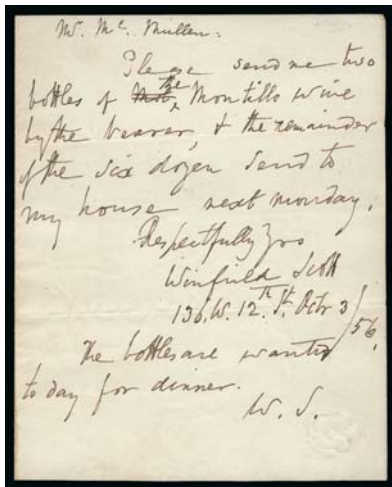 Mr. Mc. Mullen:
Please send me two
bottles of the Montillo wine
by the bearer, & the remainder
of the six dozen send to
my house next monday.
Respectfully Yrs
Winfield Scott
136. W. 12.th St. Octr 3/56.
The bottles are wanted
to day for dinner.
W. S.